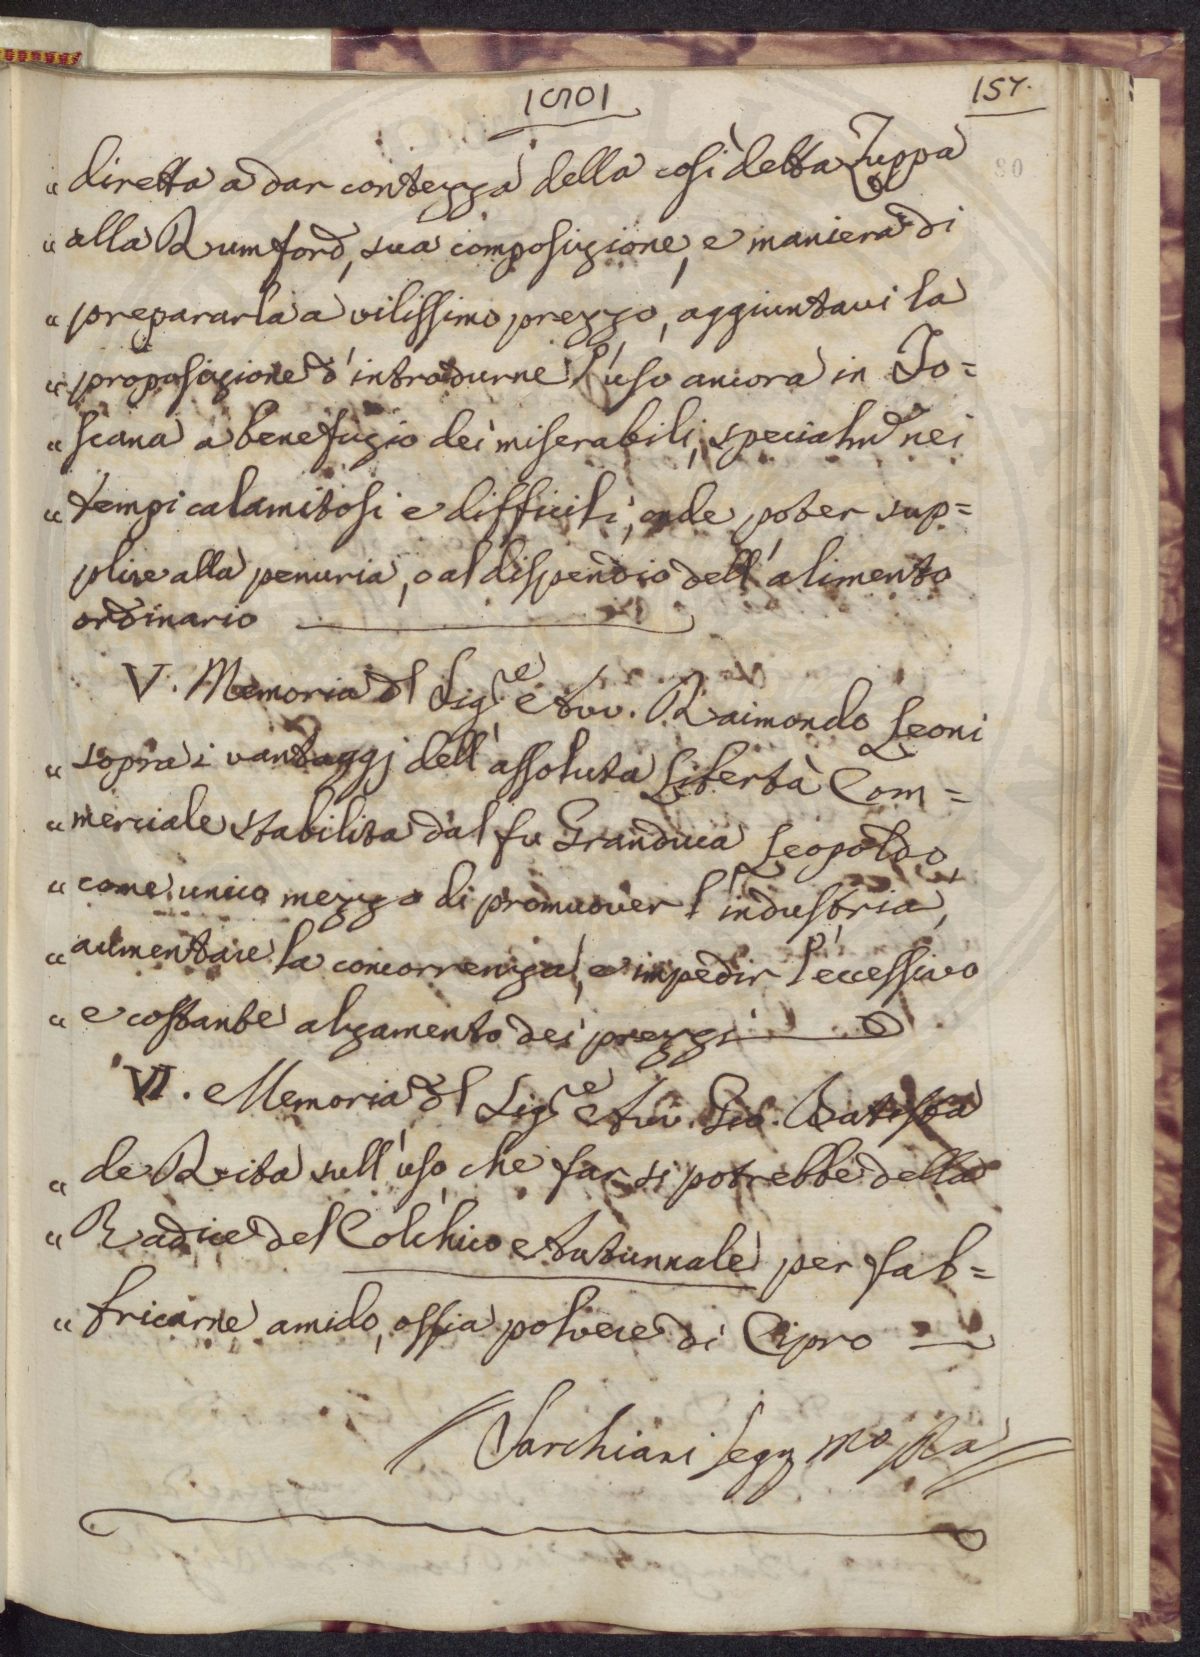 1801
157.
80
" diretta a dar contezza della così detta Zuppa
" alla Rumford, sua composizione, e maniera di
" prepararla a vilissimo prezzo, aggiuntavi la
" proposizione d'introdurne l'uso ancora in To=
" scana a benefizio dei miserabili, specialm.e nei
" tempi calamitosi e difficili, onde poter sup=
plire alla penuria, o al dispendio dell'alimento
ordinario
V. Memoria dl Sig.re Avv. Raimondo Leoni
" sopra i vantaggj dell'assoluta Libertà Com=
" merciale stabilita dal fu Granduca Leopoldo,
" come unico mezzo di promuover l'industria,
" aumentare la concorrenza, e impedir l'eccessivo
" e costante alzamento dei prezzi
VI. Memoria dl Sig.re Avv. Gio. Batista
" de Rita sull'uso, che far si potrebbe della
" Radice del Colchico Autunnale per fab=
" bricarne amido, ossia polvere di Cipro
Sarchiani Seg.